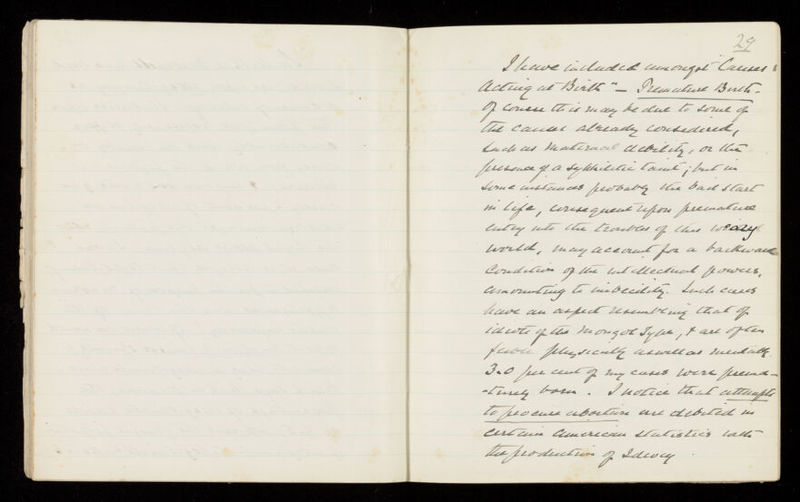 29
I have included amongst "Causes
Acting at Birth" — Premature Birth.
Of course this may be due to some of
the causes already considered,
such as maternal debility, or the
presence of a syphilitic taint; but in
some instances probably the bad start
in life, consequent upon premature
entry into the troubles of this weary
world, may account for a backward
condition of the intellectual powers,
amounting to imbecility. Such cases
have an aspect resembling that of
idiots of the Mongol Type, & are often
physically as well as mentally.
3.0 per cent of my cases were prema-
-turely born. I notice that attempts
to procure abortion are debited in
certain American statistics with
the production of Idiocy.